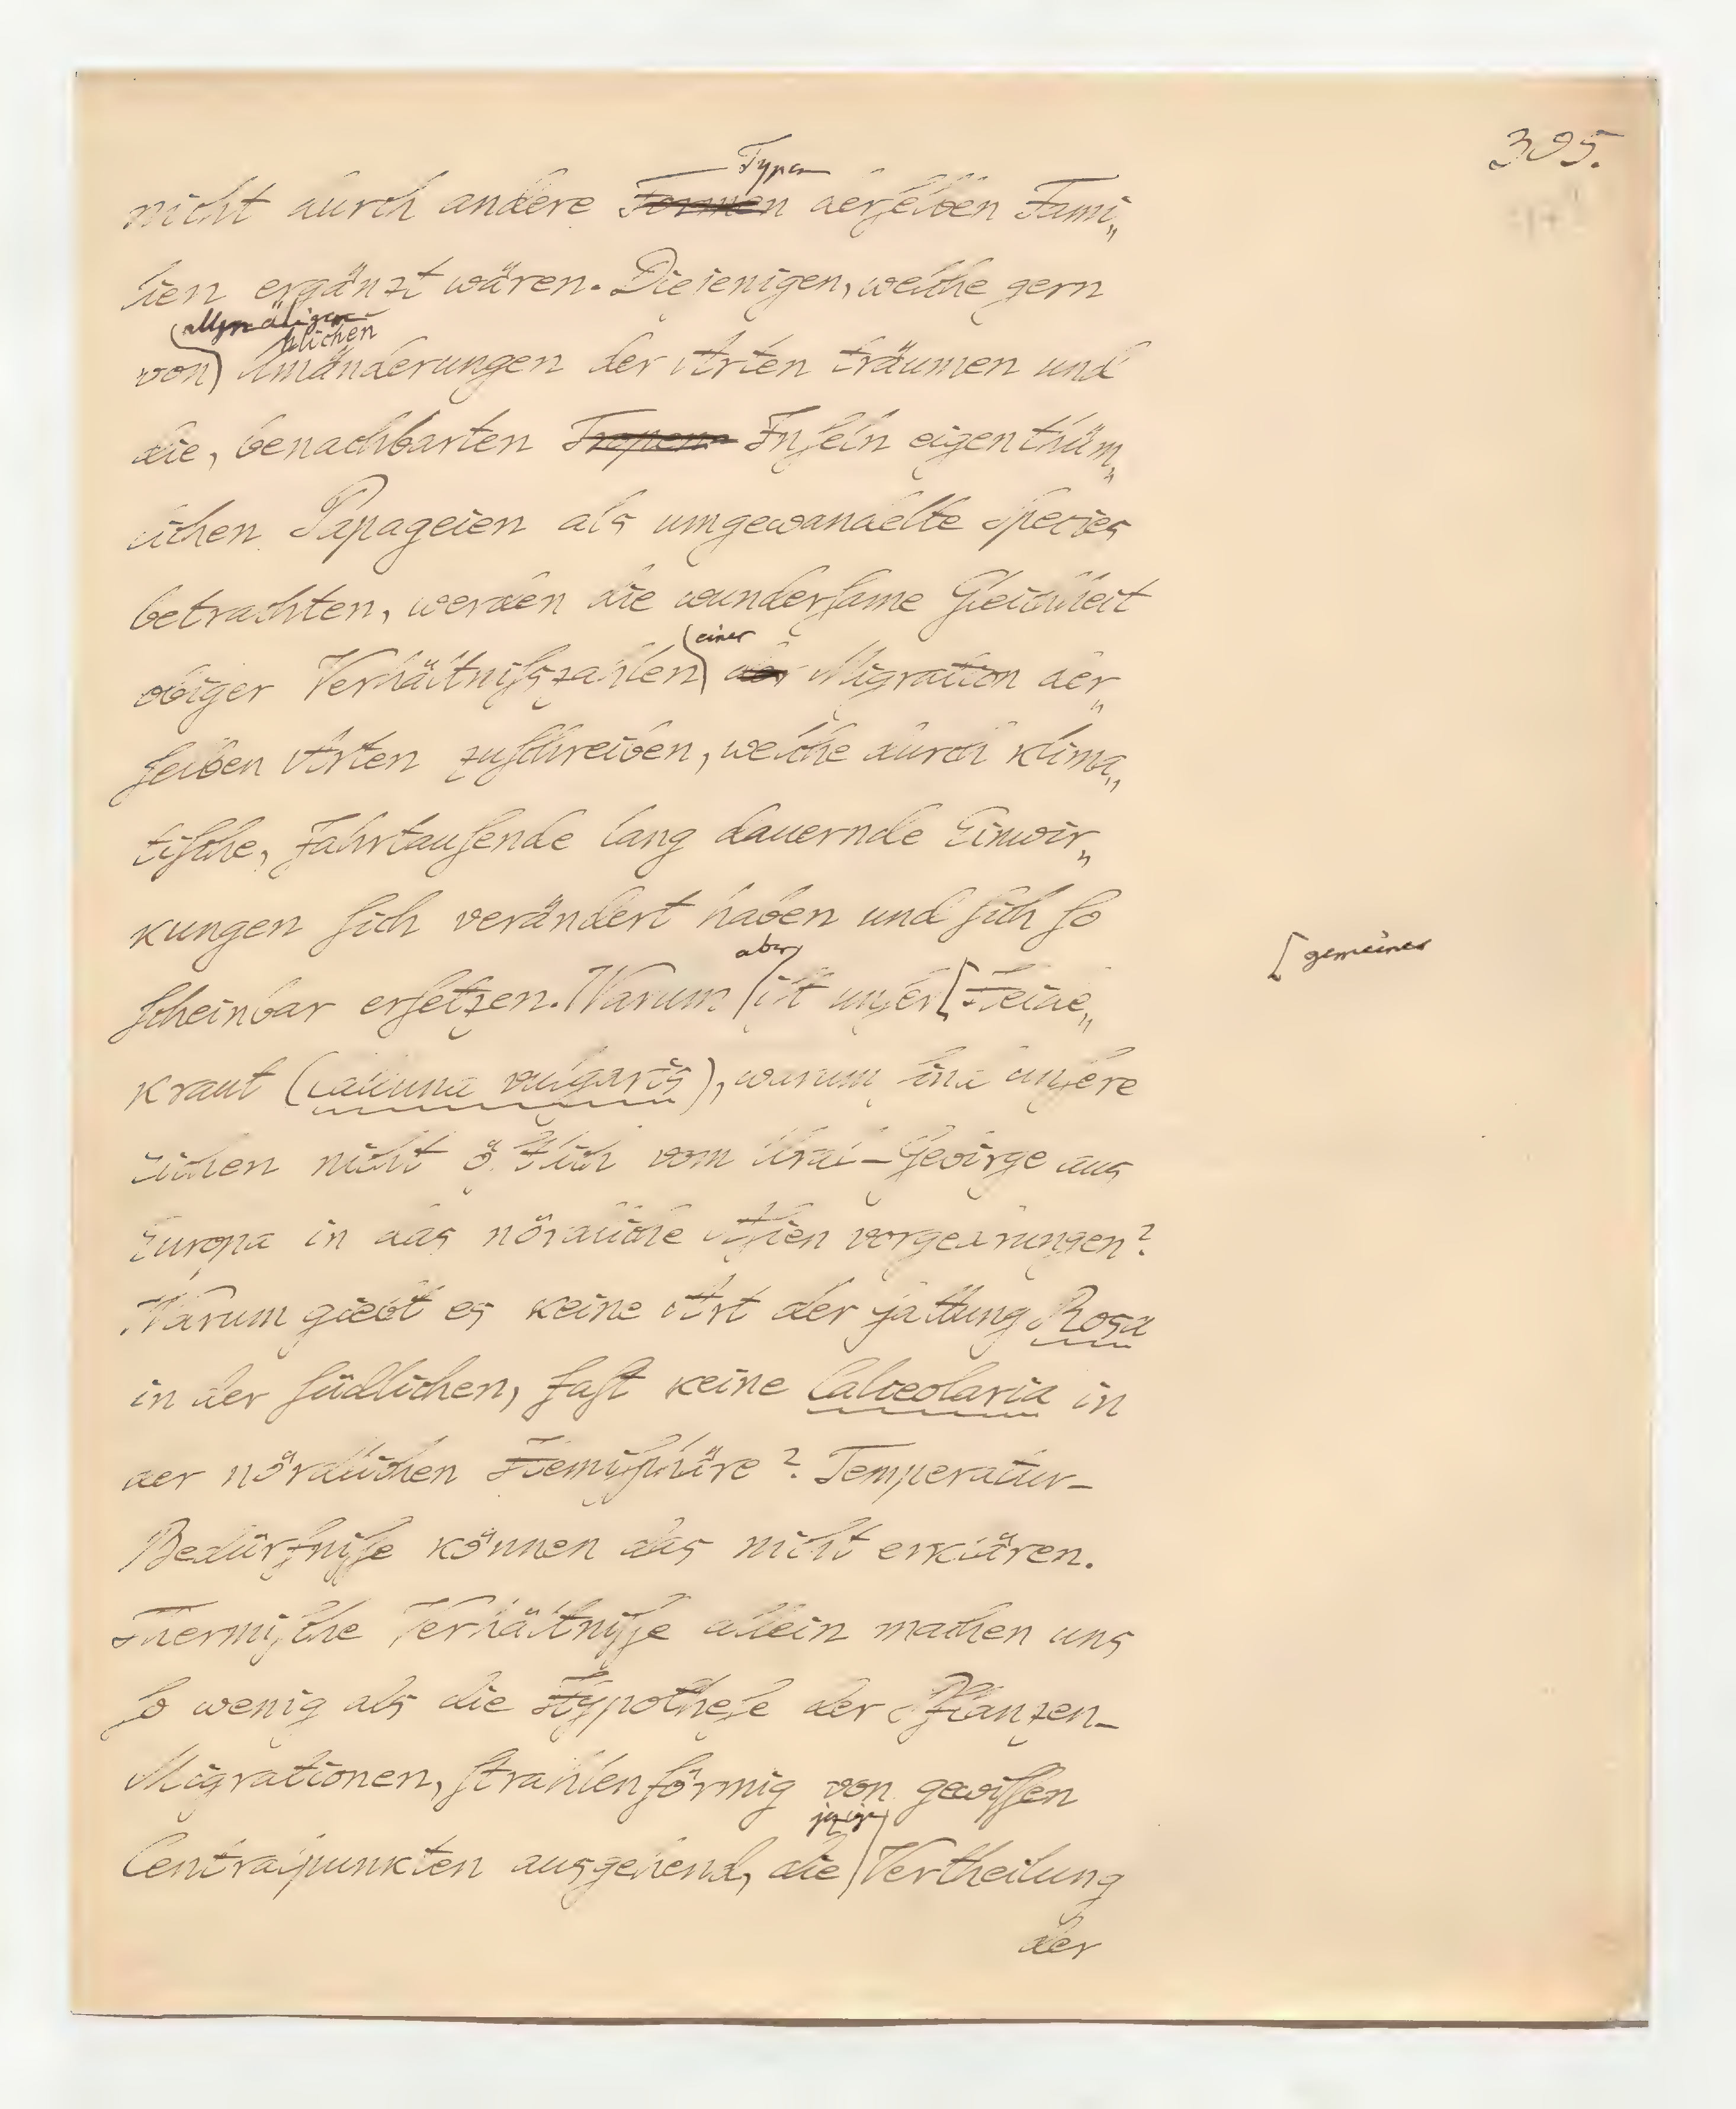 395.
nicht durch andere Formen Typen derselben Fami„
lien ergänzt wären. Diejenigen, welche gern
von allmäligen hlichen Umänderungen der Arten träumen und
die, benachbarten Tropen Inseln eigenthüm„
lichen Papageien als umgewandelte Species
betrachten, werden die wundersame Gleichheit
obiger Verhältnißzahlen einer der Migration der„
selben Arten zuschreiben, welche durch klima„
tische, Jahrtausende lang dauernde Einwir„
kungen sich verändert haben und sich so
scheinbar ersetzen. Warum aber ist unser [Heide„
[gemeines
kraut (Calluna vulgaris), warum sind unsere
Eichen nicht östlich vom Ural-Gebirge aus
Europa in das nördliche Asien vorgedrungen?
Warum giebt es keine Art der Gattung Rosa
in der südlichen, fast keine Calceolaria in
der nördlichen Hemisphäre? Temperatur-
Bedürfnisse können das nicht erklären.
Thermische Verhältnisse allein machen uns
so wenig als die Hypothese der Pflanzen-
Migrationen, strahlenförmig von gewissen
Centralpunkten ausgehend, die jezige Vertheilung
der